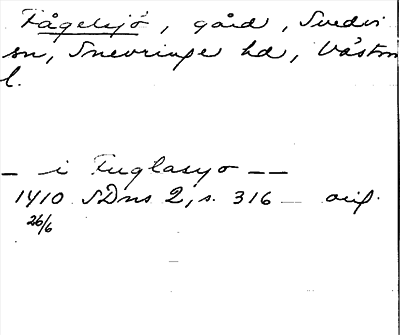 Fågelsjö, gård, Svedvi
sn, Snevringe hd, Västm
l.
– i Fuglasyo – –
1410 SDns 2, s. 316 – orig.
26/6